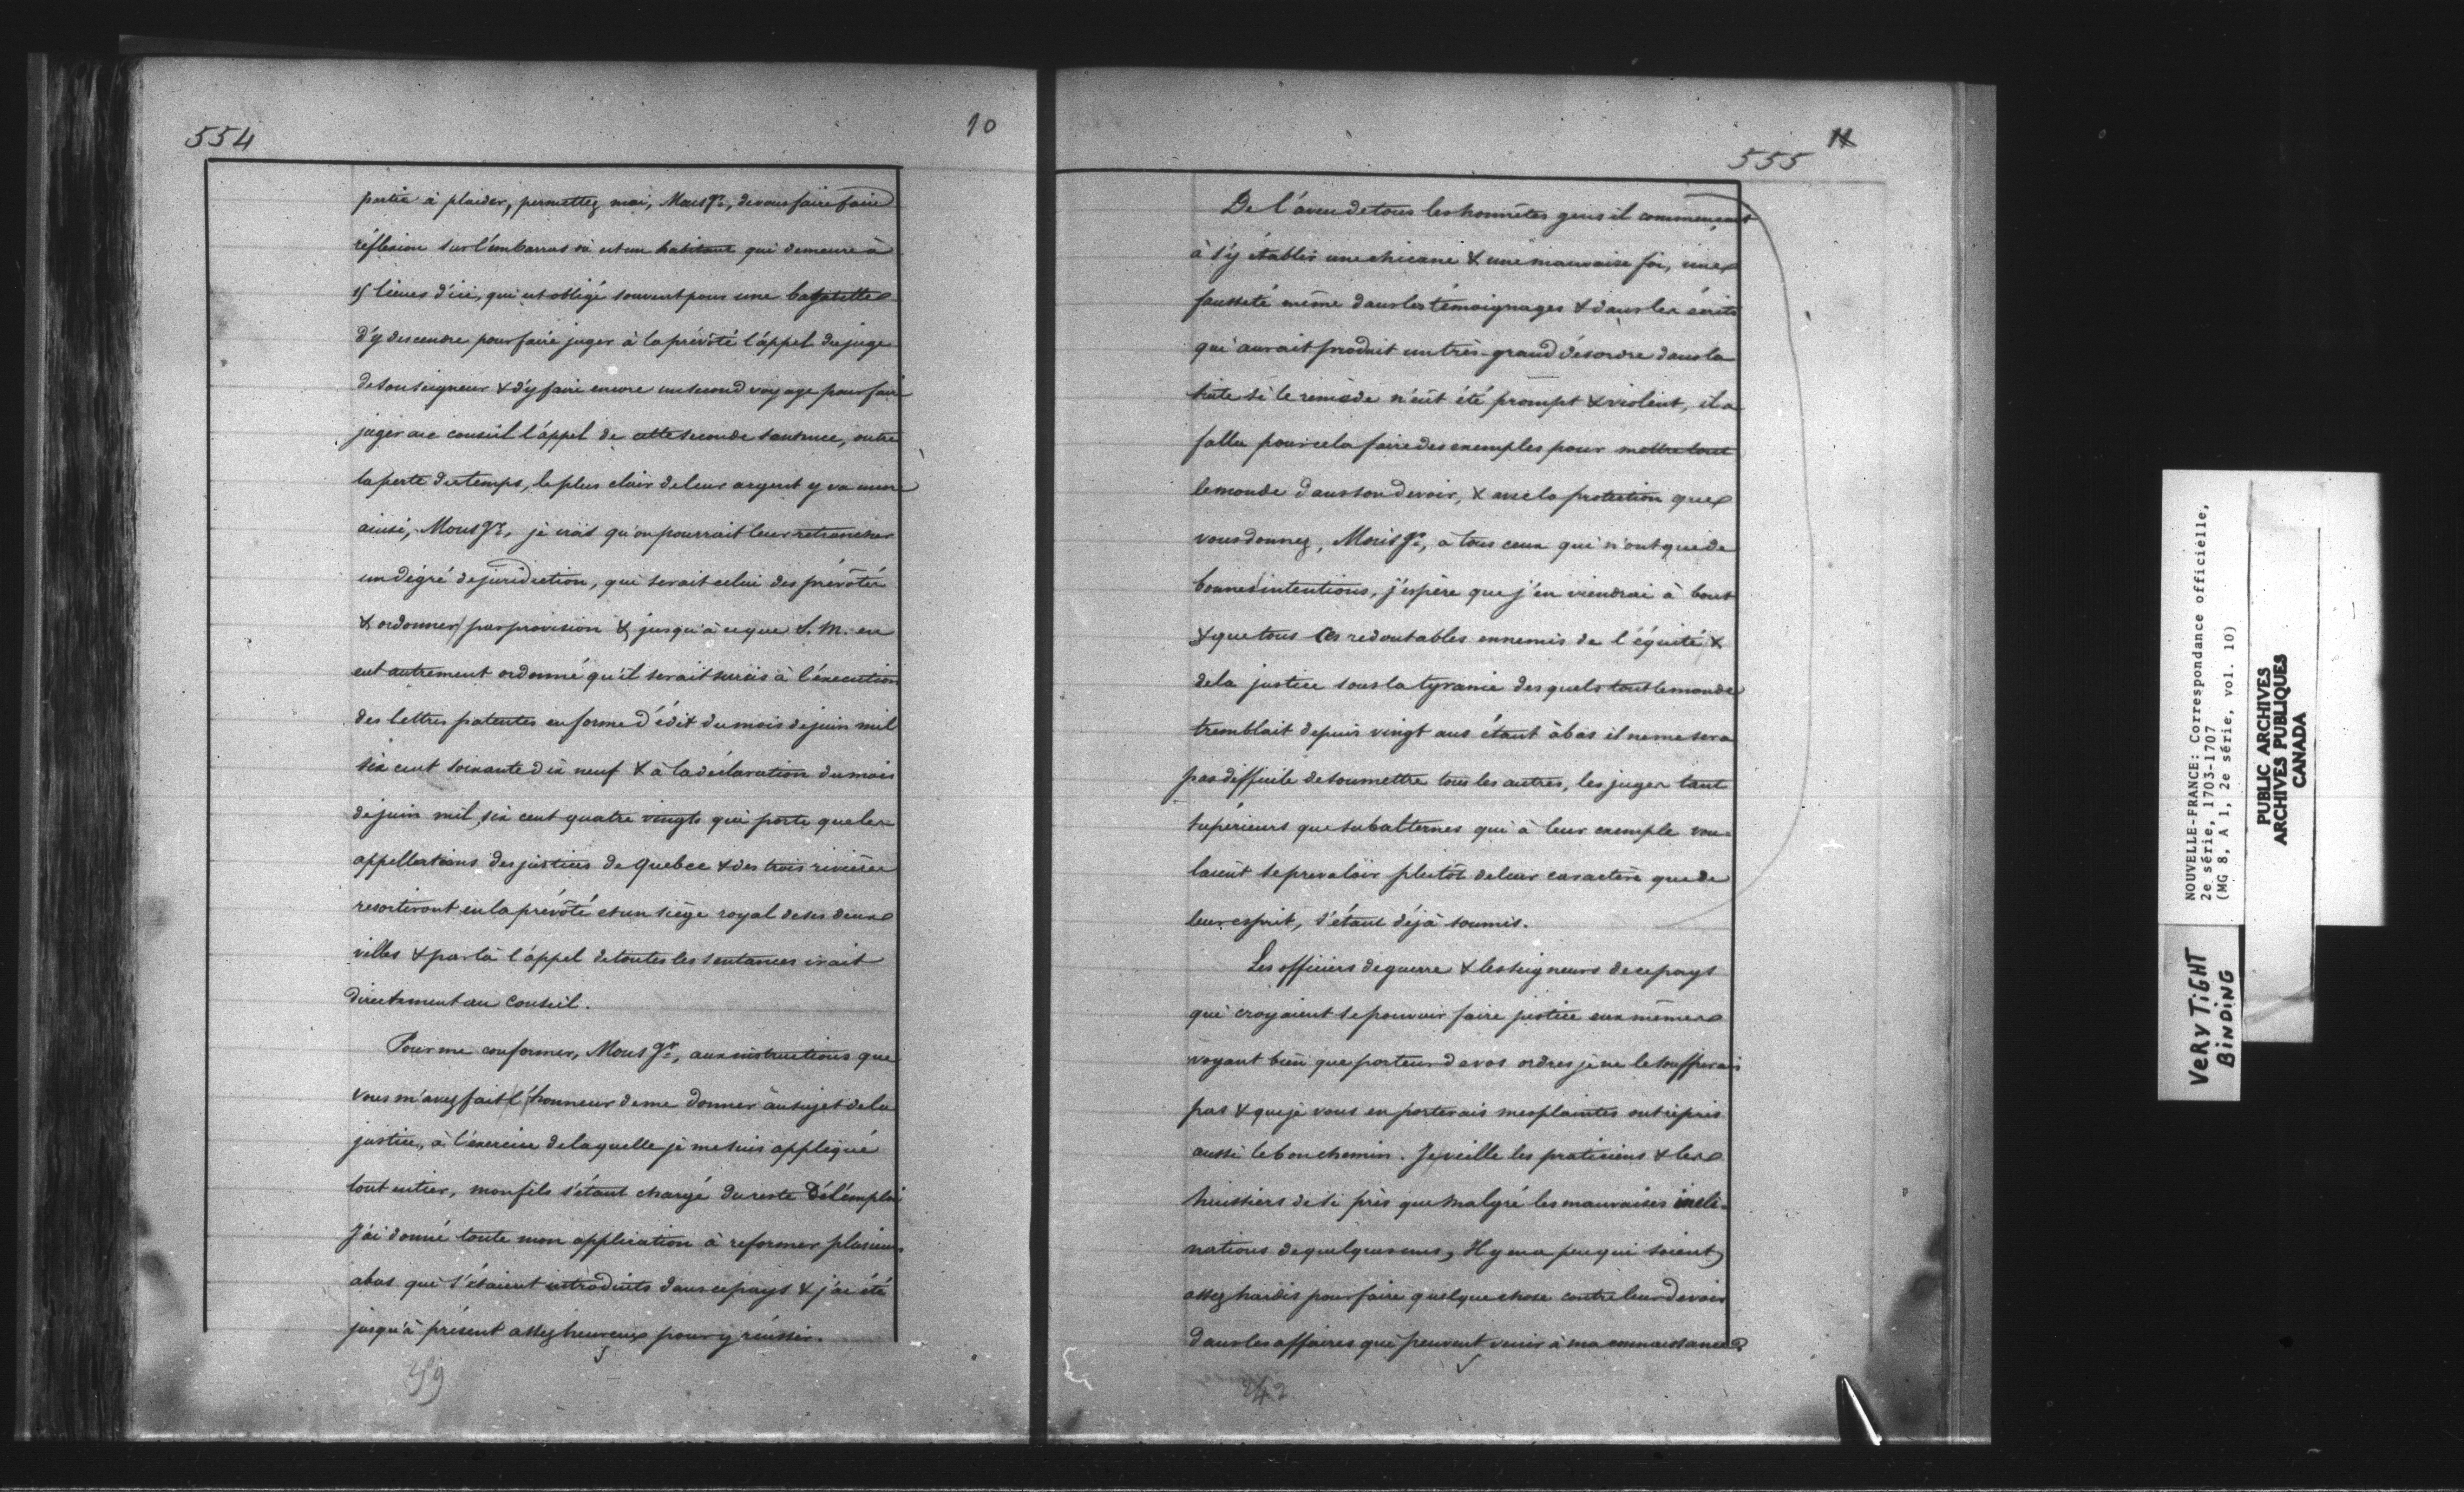 554
10
partie à plaider, permettez moi, Mons gr, de vous faire faire
réflexion sur l'embarras où est un habitant qui demeure à
15 lieues d'ici, qui est obligé souvent pour une bagatelle
d'y descendre pour faire juger à la prévôté l'appel du juge
de son seigneur & d'y faire encore un second voyage pour faire
juger au conseil l'appel de cette seconde sentence, outre
la perte du temps, le plus clair de leur argent y va
ainsi, Mons gr, je crois qu'on pourrait leur retrancher
un dégré de juridiction, qui serait celui des prévôtés
& ordonner par provision & jusqu'à ce que S. M. en
eut autrement ordonné qu'il serait sursis à l'éxecution
des lettres patentes en forme d'édit du mois de juin mil
six cent soixante dix neuf & à la déclaration du mois
de juin mil six cent quatre vingts qui porte que les
appellations des justices de Quebec & des trois rivières
resortiront en la prévôté et un siège royal de ses deux
villes & par là l'appel de toutes les sentances irait
directement au Conseil.
Pour me conformer, Mons gr, aux instructions que
vous m'avez fait l'honneur de me donner au sujet de la
justice, à l'exercice de laquelle je me suis appliqué
tout entier, mon fils s'étant chargé du reste de l'emploi
J'ai donné toute mon application à reformer plusieurs
abus qui s'étaient introduits dans ce pays & j'ai été
jusqu'à présent assez heureux pour y réussir.
11
555
De l'aveu de tous les honnêtes gens il commençait
à s'y établir une chicane & une mauvaise foi, une
fausseté même dans les témoignages & dans les écrits
qui aurait produit un très-grand désordre dans la
suite si le remède n'eût été prompt & violent, il a
fallu pour cela faire des exemples pour mettre tout
le monde dans son devoir, & avec la protection que
vous donnez, Mons gr, à tous ceux qui n'ont que de
bonnes intentions, j'espère que j'en viendrai à bout
& que tous ces redoutables ennemis de l'équité &
de la justice sous la tyranie des quels tout le monde
tremblait depuis vingt ans étant à bas il ne me sera
pas difficile de soumettre tous les autres, les juges tant
supérieurs que subalternes qui à leur exemple vou-
laient se prevaloir plutôt de leur caractère que de
leur esprit, s'étant déjà soumis.
Les officiers de guerre & les seigneurs de ce pays
qui croyaient se pouvoir faire justice eux mêmes
voyant bien que porteur de vos ordres je ne le souffrirais
pas & que je vous en porterais mes plaintes ont repris
aussi le bon chemin. Je veille les praticiens & les
huissiers de si près que malgré les mauvaises incli-
nations de quelques uns, Il y en a peu qui soient
assez hardis pour faire quelque chose contre leur devoir
dans les affaires qui peuvent venir à ma connaissance
242
NOUVELLE-FRANCE: Correspondance officielle,
2e série, 1703-1707
(MG 8, A 1, 2e série, vol. 10)
PUBLIC ARCHIVES
ARCHIVES PUBLIQUES
CANADA
VERY TIGHT
BINDING